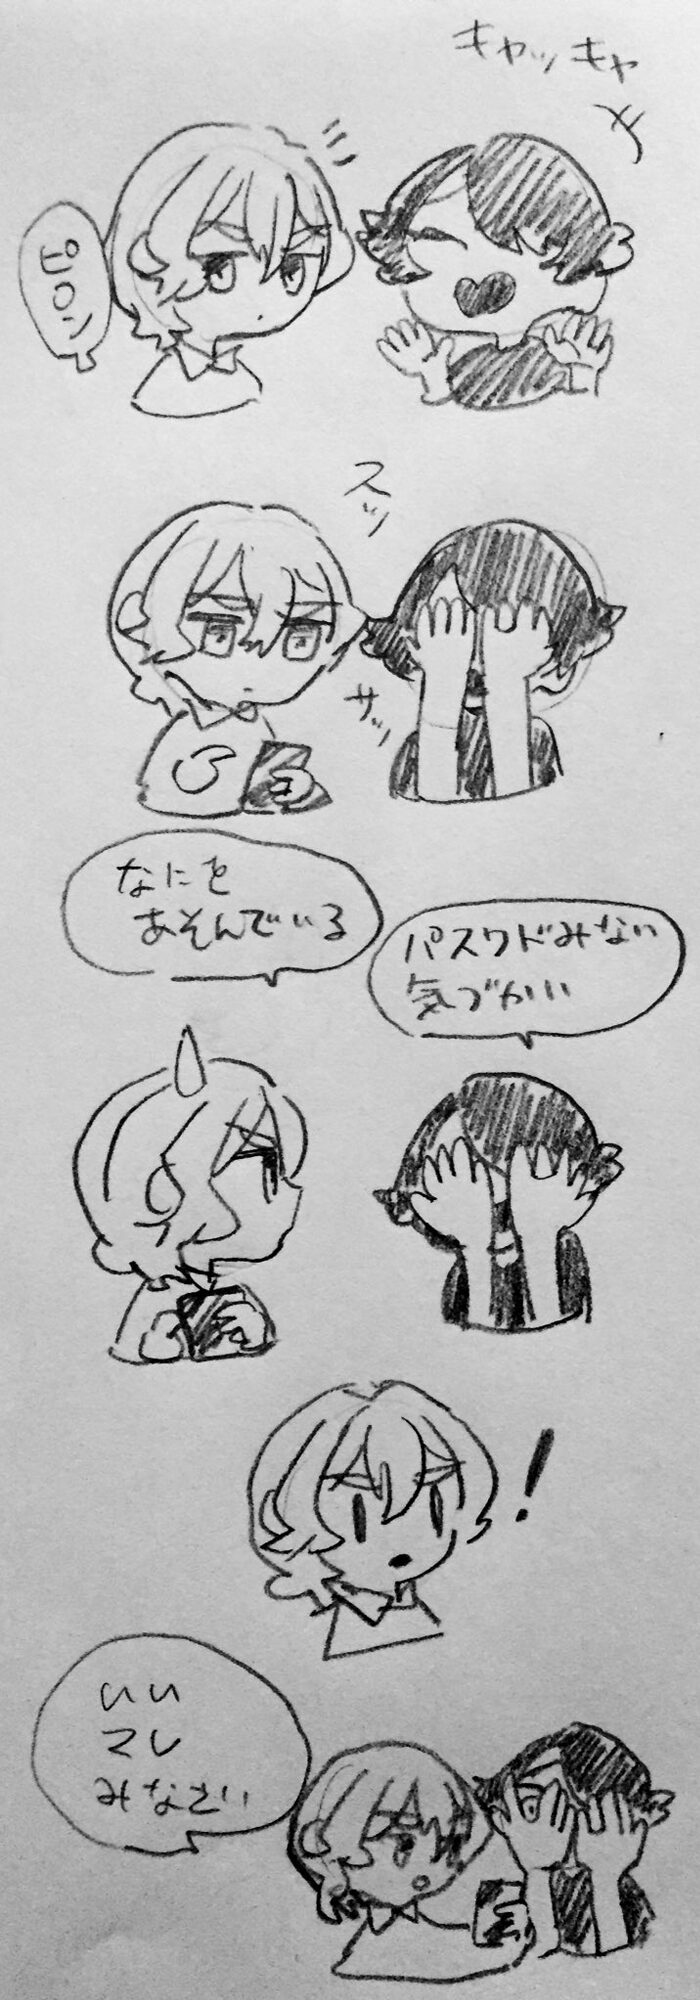 キャッキャ
スッ
サッ
なにを
あそんでいる
パスワドみない
気づかい
いい
コレ
みなさい